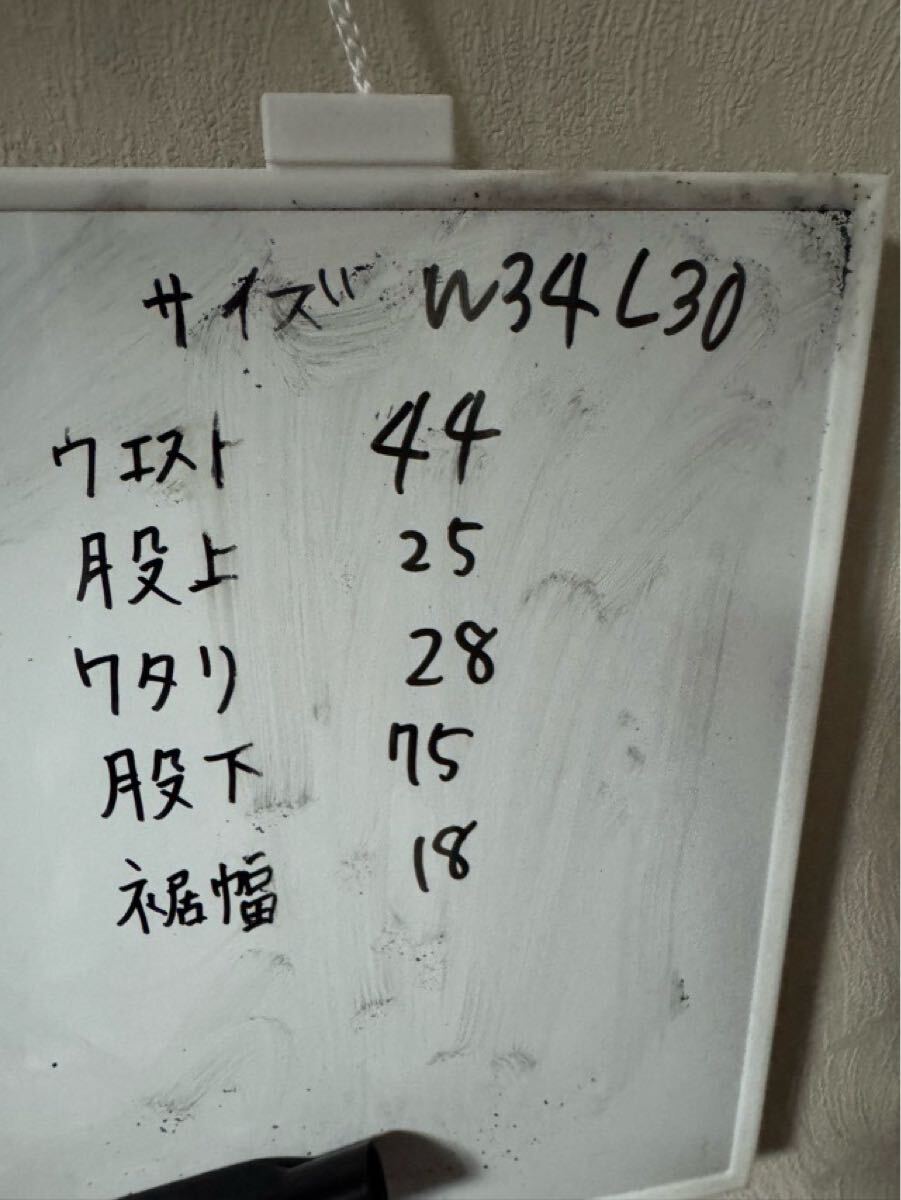 サイズ W34 L30
ウエスト 44
股上 25
ワタリ 28
股下 75
裾幅 18